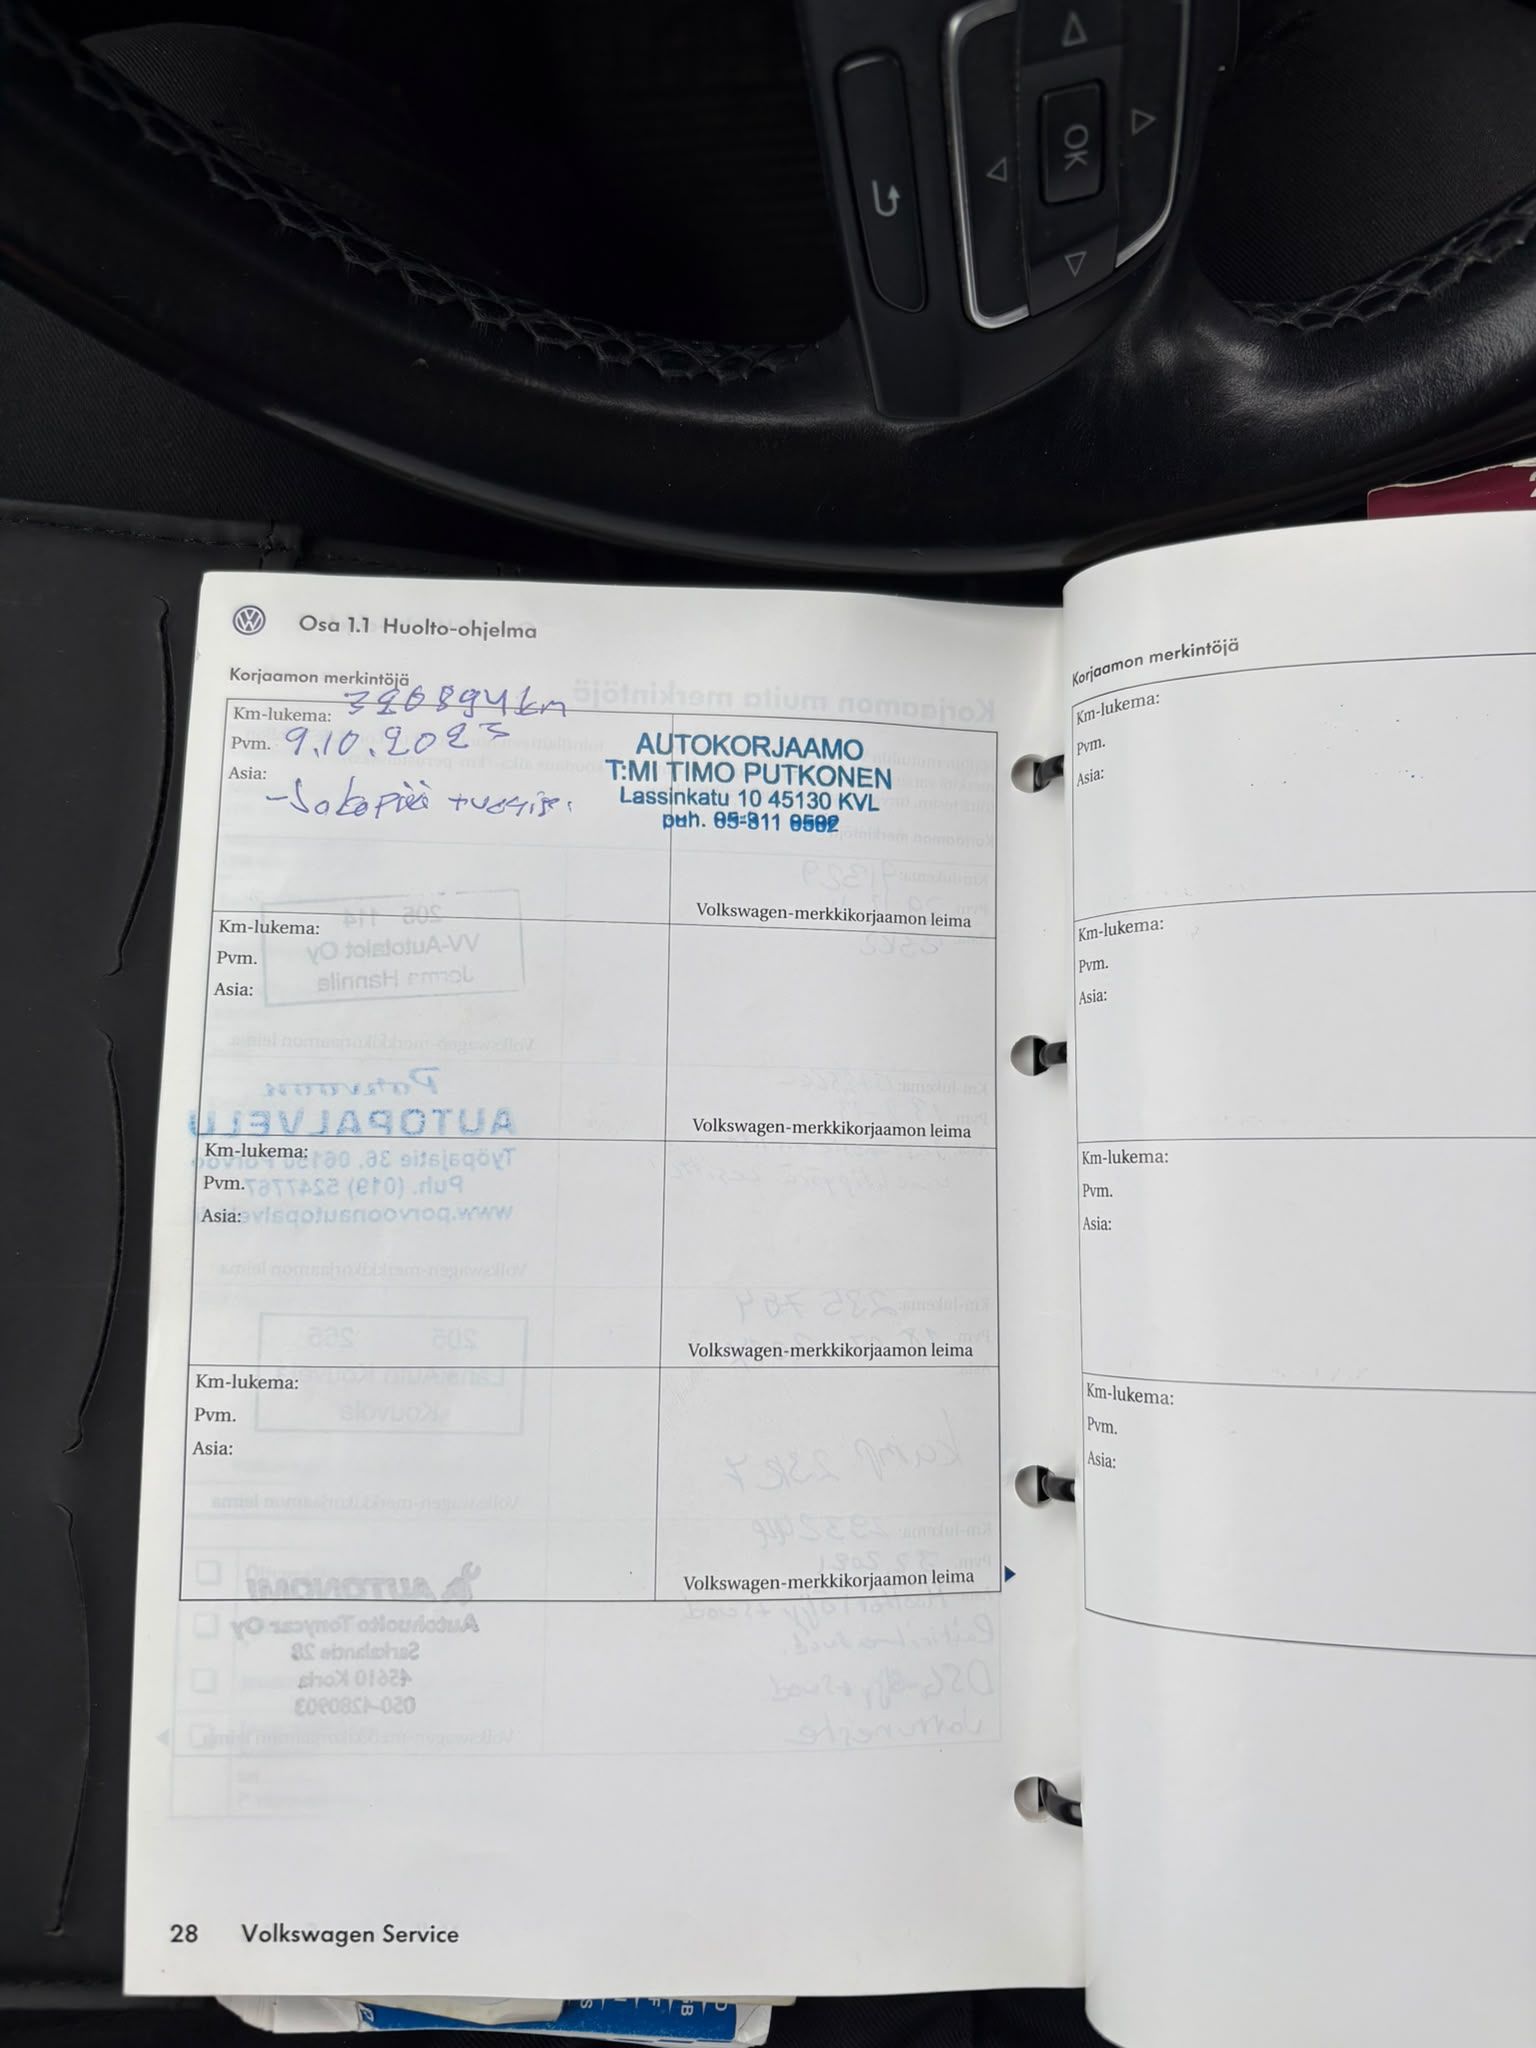 OK
Osa 1.1 Huolto-ohjelma
Korjaamon merkintöjä
Km-lukema: 320894 km
Pvm. 9.10.2023
Asia:
AUTOKORJAAMO
T:MI TIMO PUTKONEN
Lassinkatu 10 45130 KVL
puh. 05-311
Volkswagen-merkkikorjaamon leima
Km-lukema:
Pvm.
Asia:
Volkswagen-merkkikorjaamon leima
Km-lukema:
Pvm.
Asia:
Volkswagen-merkkikorjaamon leima
Km-lukema:
Pvm.
Asia:
Volkswagen-merkkikorjaamon leima
28 Volkswagen Service
Korjaamon merkintöjä
Km-lukema:
Pvm.
Asia:
Km-lukema:
Pvm.
Asia:
Km-lukema:
Pvm.
Asia:
Km-lukema:
Pvm.
Asia: